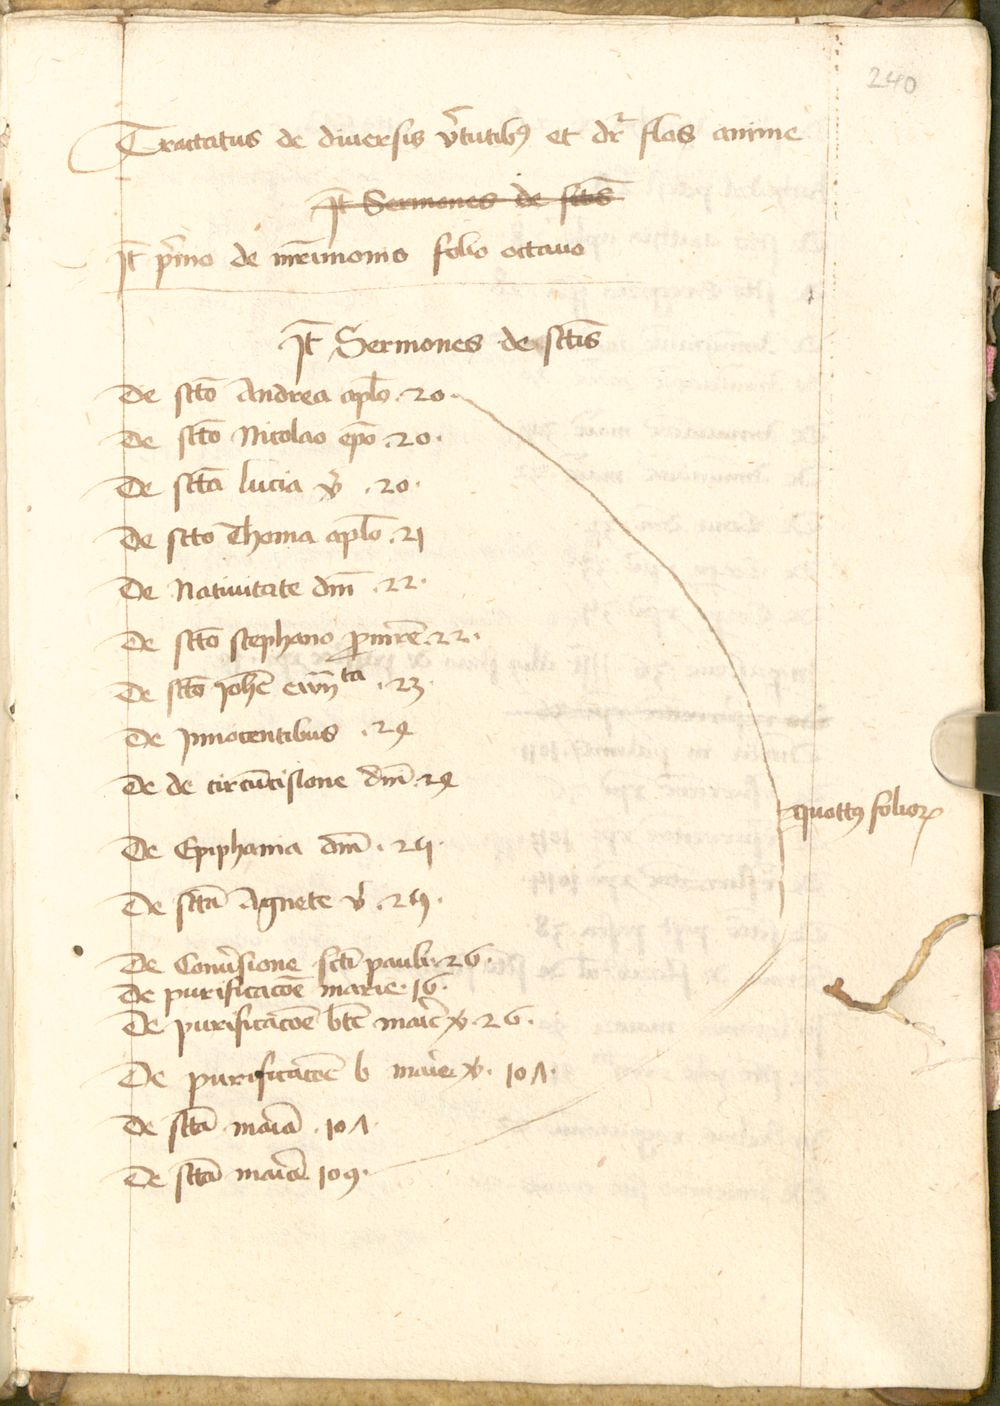 240
Tractatus de diversis v̄tutibꝫ et dr̄ flos anime
It̄ Sermones de sctis̄
It̄ p̄mo de mr̄imonio folio octavo
It̄ Sermones de sctis̄
De sctō Andrea aplō . 20 .
De sctō Nicolao epō . 20 .
De sctā lucia v̄ . 20 .
De scto Thoma aplō . 21
De Nativitate dnī . 22 .
De sctō stephano ꝓmr̄e . 22 .
De sctō Johē ewn̄ta . 23 .
De Innocentibus . 24
De de circūcisione dnī . 24
De Epiphania dnī . 25 .
De sctā Agnete v̄ . 25 .
De Conv̄sione sctī pauli . 26 .
De purificacōe marie . 16 .
De purificacōe btē maīe v̄ . 26 .
De purificacōe b maīe v̄ . 107 .
De sctā maīa . 107 .
De sctā maīa 109 .
quottꝰ folioꝝ